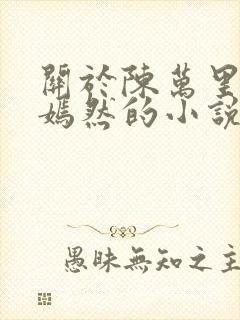 關於陳萬里
嫣然的小說
愚昧無知之主